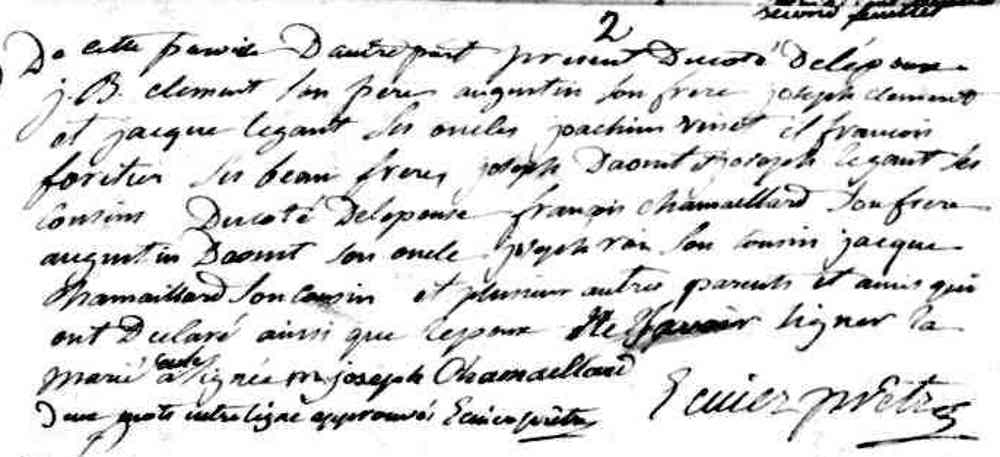 2
second feuillet
De cette paroisse D'autre part present Ducoté Delépoux
j. B. clement son pere augustin son frere joseph clement
et jacque legaut ses oncles joachim et francois
fortier ses beau freres joseph Daoust joseph legaut ses
cousins Ducoté Delepouse françois chamaillard son frere
augustin Daoust son oncle joseph son cousin jacque
Chamaillard son cousin et plusieur autres parents et amis qui
ont Declaré ainsi que lepoux Ne savoir signer la
marié a signée joseph Chamaillard
mots interligné approuvés prêtre
prêtre